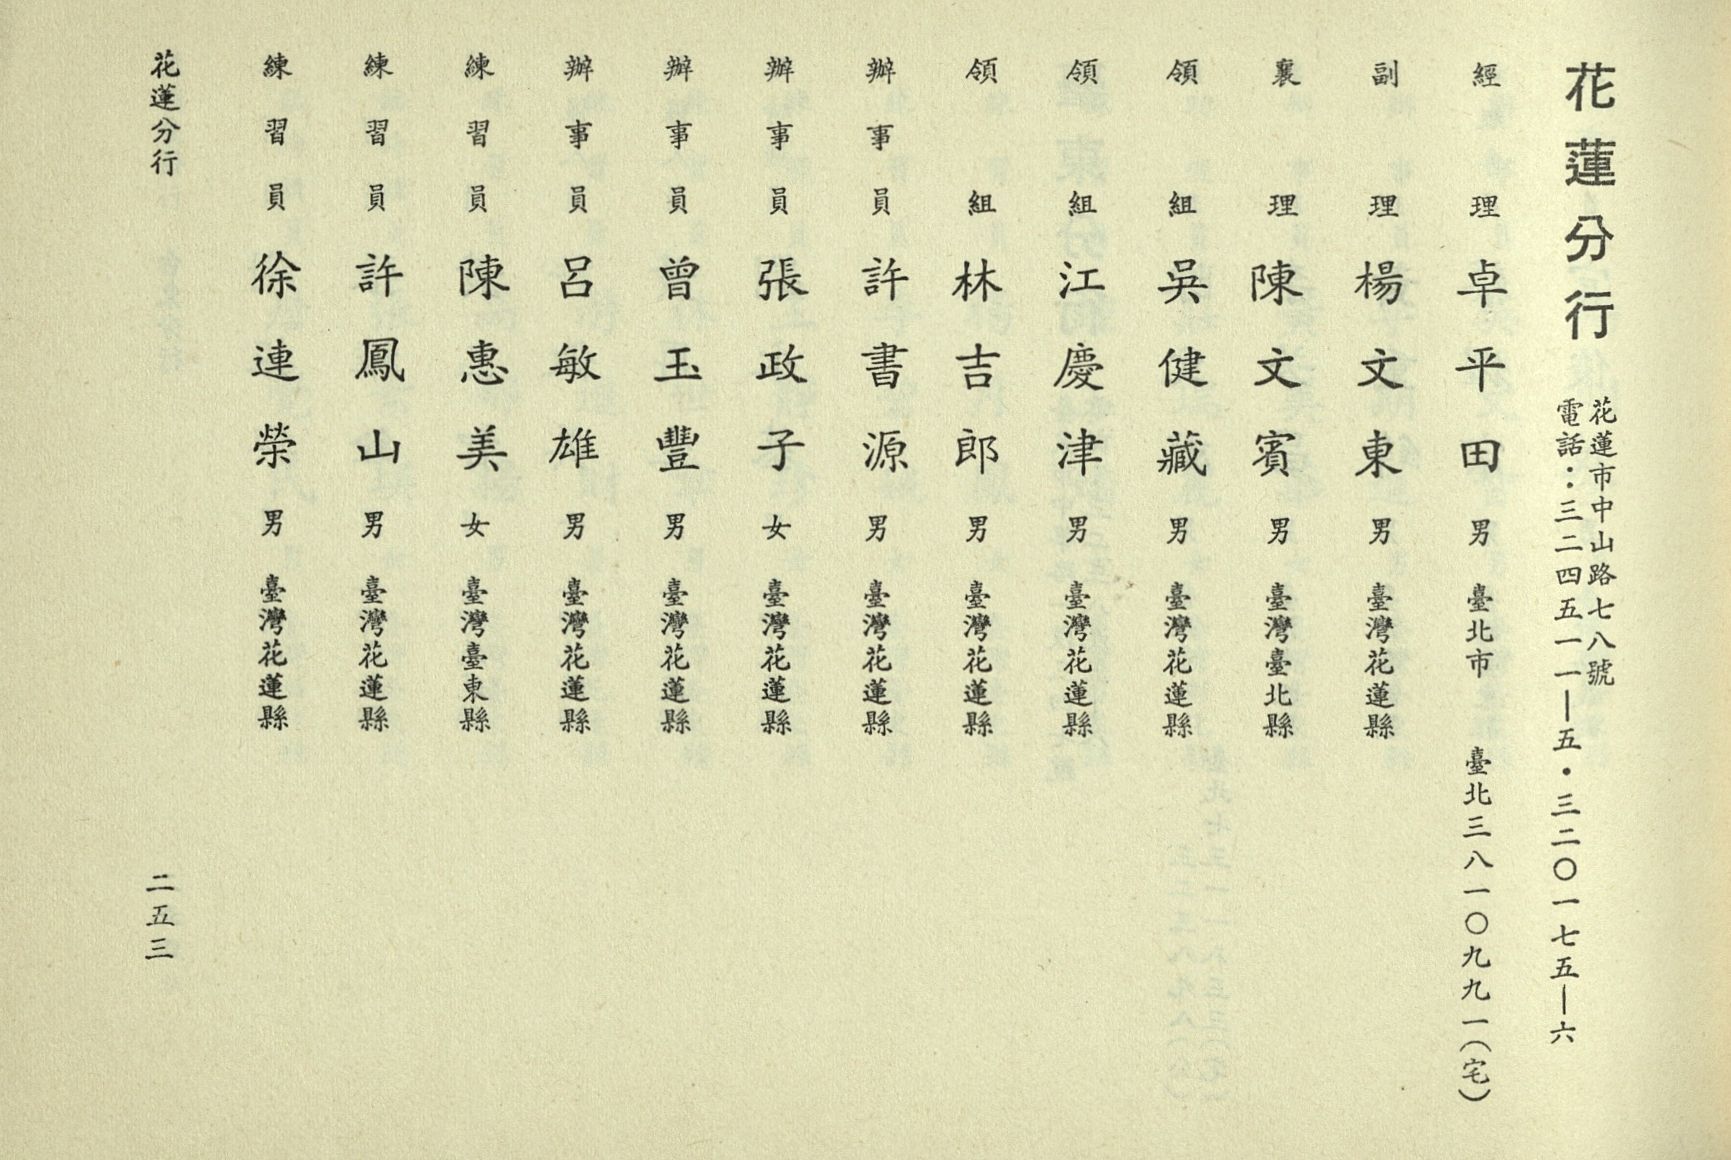 花蓮分行
花蓮市中山路七八號
電話：三二四五一一—五・三二〇一七五—六
經理 卓平田 男 臺北市 臺北三八一〇九九一（宅）
副理 楊文東 男 臺灣花蓮縣
襄理 陳文賓 男 臺灣臺北縣
領組 吳健藏 男 臺灣花蓮縣
領組 江慶津 男 臺灣花蓮縣
領組 林吉郎 男 臺灣花蓮縣
辦事員 許書源 男 臺灣花蓮縣
辦事員 張政子 女 臺灣花蓮縣
辦事員 曾玉豐 男 臺灣花蓮縣
辦事員 呂敏雄 男 臺灣花蓮縣
練習員 陳惠美 女 臺灣臺東縣
練習員 許鳳山 男 臺灣花蓮縣
練習員 徐連榮 男 臺灣花蓮縣
花蓮分行
二五三